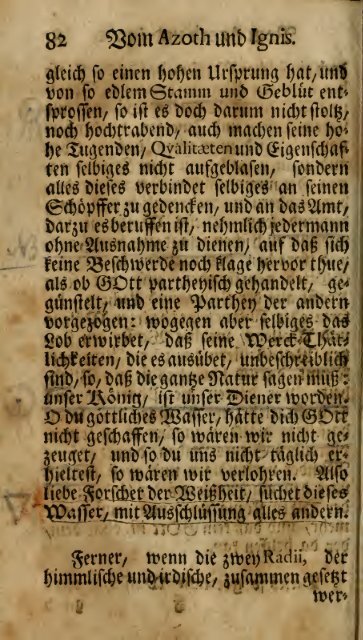 82 Vom Azoth und Ignis.
gleich so einen hohen Ursprung hat, und
von so edlem Stamm und Geblüt ent-
sprossen, so ist es doch darum nicht stoltz,
noch hochtrabend, auch machen seine ho-
he Tugenden, Qvalitæten und Eigenschaf-
ten selbiges nicht aufgeblasen, sondern
alles dieses verbindet selbiges an seinen
Schöpffer zu gedencken, und an das Amt,
darzu es beruffen ist, nehmlich jedermann
ohne Ausnahme zu dienen, auf daß sich
keine Beschwerde noch klage hervor thue,
als ob GOtt partheyisch gehandelt, ge-
günstelt, und eine Parthey der andern
vorgezogen: wogegen aber selbiges das
Lob erwirbet, daß seine Werck-Thät-
lichkeiten, die es ausübet, unbeschreiblich
sind, so, daß die gantze Natur sagen muß:
unser König, ist unser Diener worden.
O du göttliches Wasser, hätte dich GOtt
nicht geschaffen, so wären wir nicht ge-
zeuget, und so du uns nicht täglich er-
hieltest, so wären wir verlohren. Also
liebe Forscher der Weißheit, suchet dieses
Wasser, mit Ausschlüssung alles andern.
Ferner, wenn die zwey Radii, der
himmlische und irdische, zusammen gesetzt
wer-